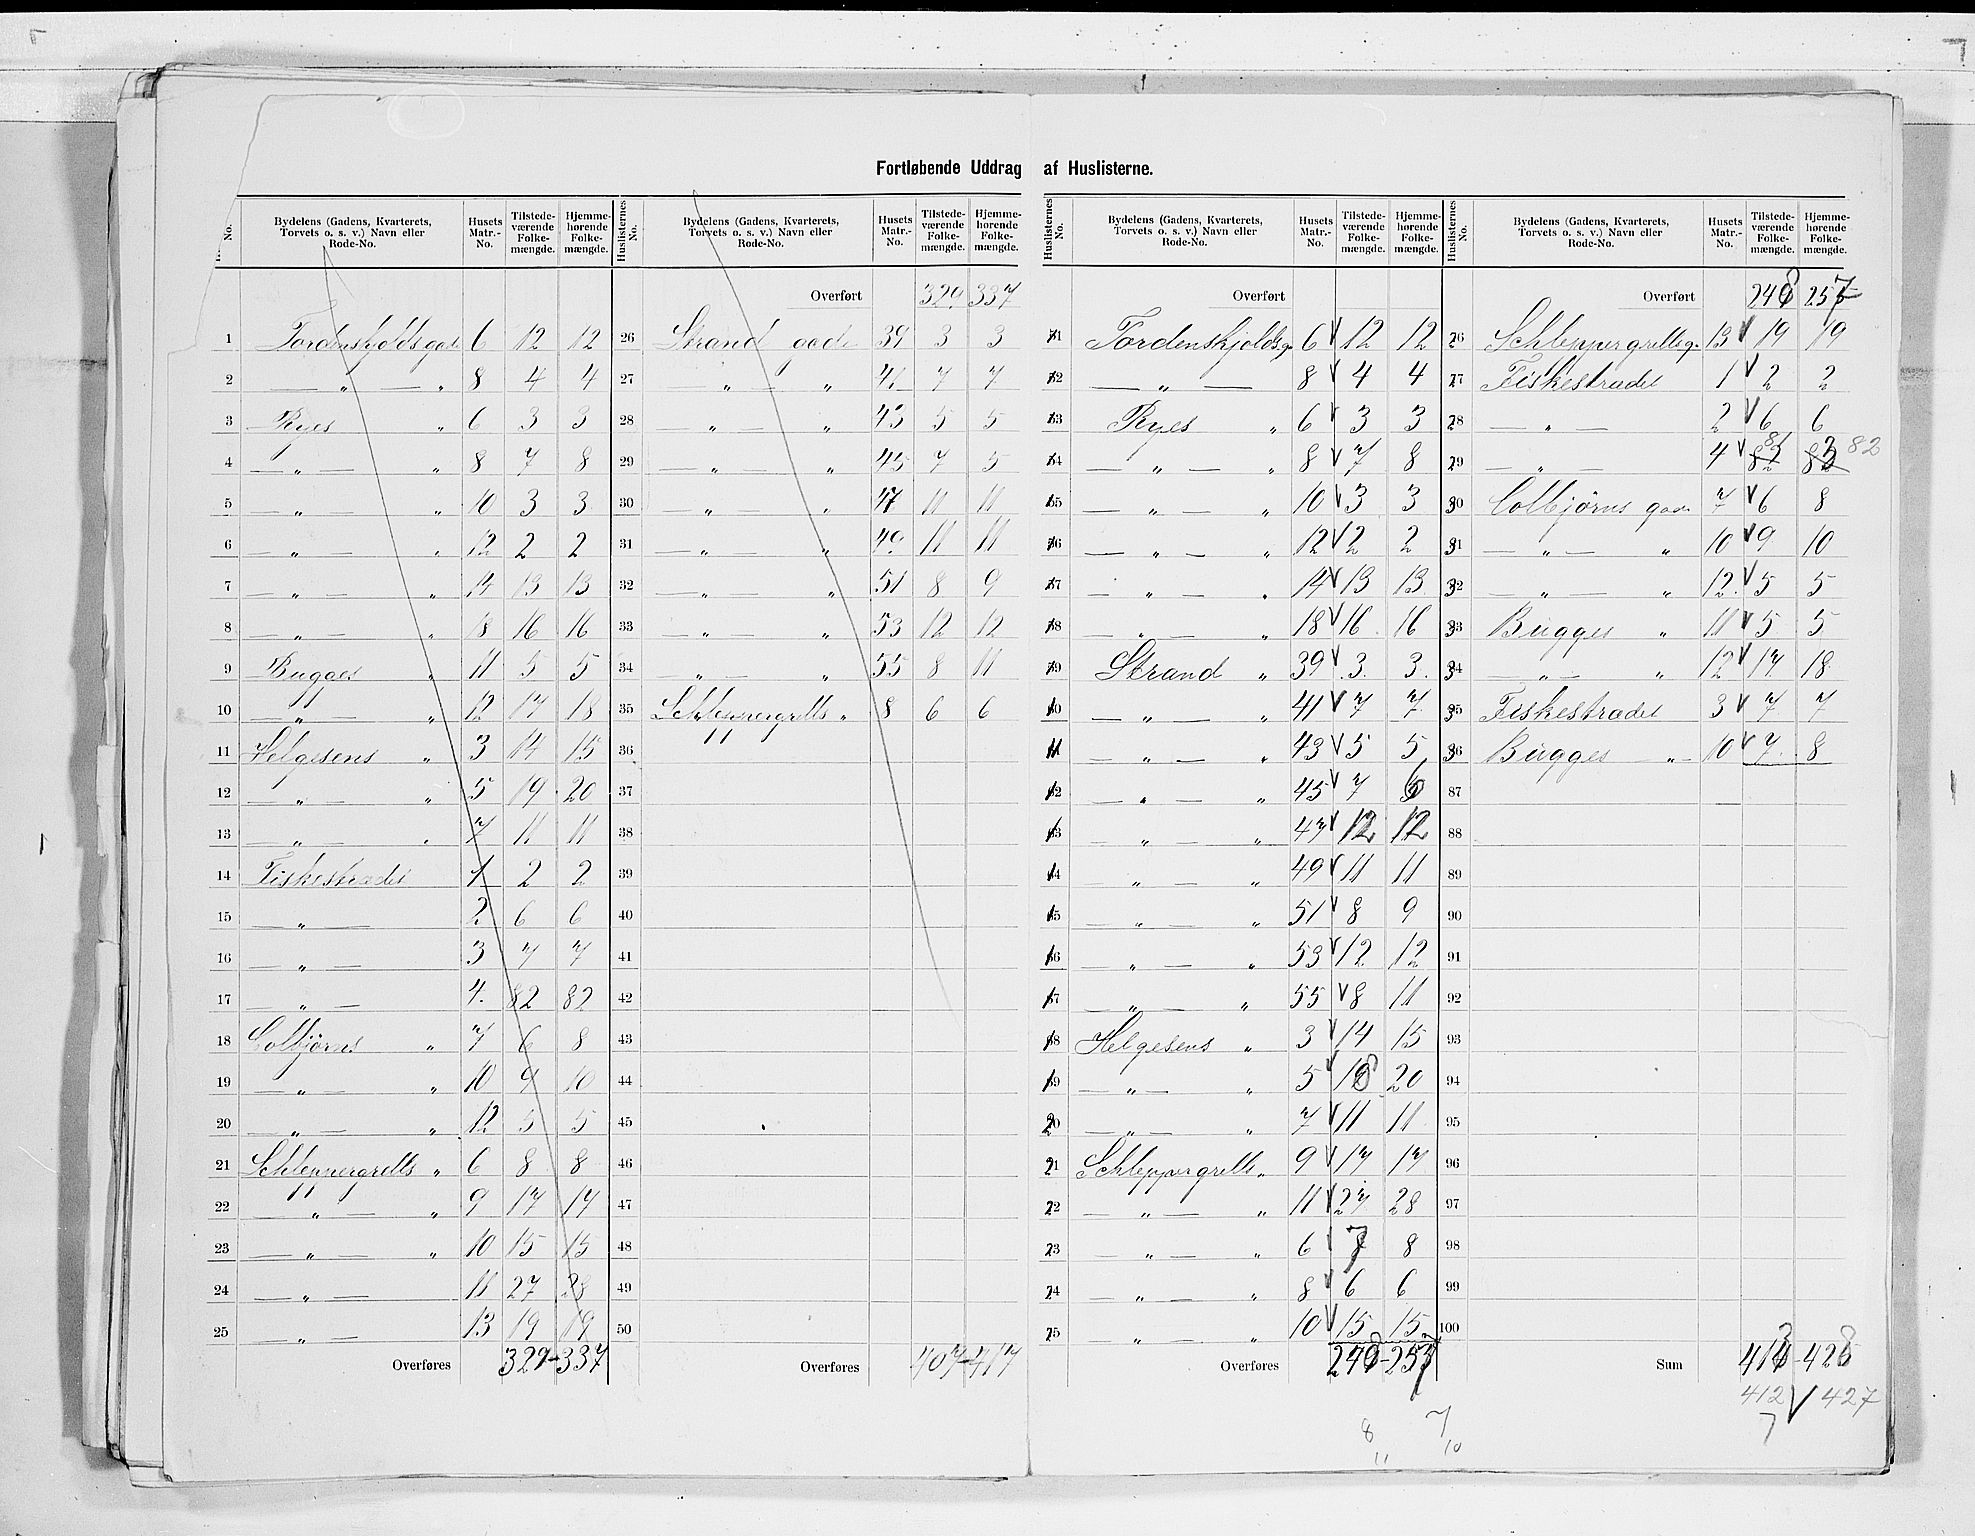 Fortløbende Uddrag af Huslisterne.
No. Bydelens (Gadens, Kvarterets, Torvets o. s. v.) Navn eller Rode-No. Husets Matr.-No. Tilstede-værende Folke-mængde. Hjemme-hørende Folke-mængde.
1 Tordenskjolds gade 6 12 12
2 — „ — „ 8 4 4
3 Ryes „ 6 3 3
4 — „ — „ 8 7 8
5 — „ — „ 10 3 3
6 — „ — „ 12 2 2
7 — „ — „ 14 13 13
8 — „ — „ 18 16 16
9 Bugges „ 11 5 5
10 — „ — „ 12 17 18
11 Helgesens „ 3 14 15
12 — „ — „ 5 19 20
13 — „ — „ 7 11 11
14 Fiskestrædet 1 2 2
15 — „ — 2 6 6
16 — „ — 3 7 7
17 — „ — 4 82 82
18 Colbjørns „ 7 6 8
19 — „ — „ 10 9 10
20 — „ — „ 12 5 5
21 Schleppegrells „ 6 8 8
22 — „ — „ 9 17 17
23 — „ — „ 10 15 15
24 — „ — 11 27 28
25 — „ — 13 19 19
Overføres 329 - 337
Huslisternes No. Bydelens (Gadens, Kvarterets, Torvets o. s. v.) Navn eller Rode-No. Husets Matr.-No. Tilstede-værende Folke-mængde. Hjemme-hørende Folke-mængde.
Overført 329 337
26 Strand gade 39 3 3
27 — „ „ 41 7 7
28 — „ — „ 43 5 5
29 — „ — „ 45 7 5
30 — „ — „ 47 11 11
31 — „ — „ 49 11 11
32 — „ — „ 51 8 9
33 — „ — „ 53 12 12
34 — „ — „ 55 8 11
35 Schleppegrells „ 8 6 6
36
37
38
39
40
41
42
43
44
45
46
47
48
49
50
Overføres 407 - 417
Huslisternes No. Bydelens (Gadens, Kvarterets, Torvets o. s. v.) Navn eller Rode-No. Husets Matr.-No. Tilstede-værende Folke-mængde. Hjemme-hørende Folke-mængde.
Overført
1 Tordenskjoldsg. 6 12 12
2 — „ — 8 4 4
3 Ryes „ 6 3 3
4 — „ — „ 8 7 8
5 — „ — „ 10 3 3
6 — „ — „ 12 2 2
7 — „ — „ 14 13 13
8 — „ — „ 18 16 16
9 Strand „ 39 3 3
10 — „ — „ 41 7 7
11 — „ — „ 43 5 5
12 — „ — „ 45 7
13 — „ — „ 47 12 12
14 „ — „ 49 11 11
15 „ — „ 51 8 9
16 „ — „ 53 12 12
17 — „ — „ 55 8 11
18 Helgesens „ 3 14 15
19 — „ — „ 5 18 20
20 — „ — „ 7 11 11
21 Schleppegrells „ 9 17 17
22 — „ — „ 11 27 28
23 — „ — „ 6 7 8
24 — „ — „ 8 6 6
25 — „ — „ 10 15 15
Overføres 248 - 257
8 7
11 10
Huslisternes No. Bydelens (Gadens, Kvarterets, Torvets o. s. v.) Navn eller Rode-No. Husets Matr.-No. Tilstede-værende Folke-mængde. Hjemme-hørende Folke-mængde.
Overført 248 257
26 Schleppegrellsg. 13 19 19
27 Fiskestrædet 1 2 2
28 — „ — 2 6 6
29 — „ — 4 81 82
30 Colbjørns gade 7 6 8
31 — „ — „ 10 9 10
32 — „ — „ 12 5 5
33 Bugges „ 11 5 5
34 — „ — „ 12 17 18
35 Fiskestrædet 3 7 7
36 Bugges — „ — 10 7 8
87
88
89
90
91
92
93
94
95
96
97
98
99
100
Sum 413 - 428
412 427
7